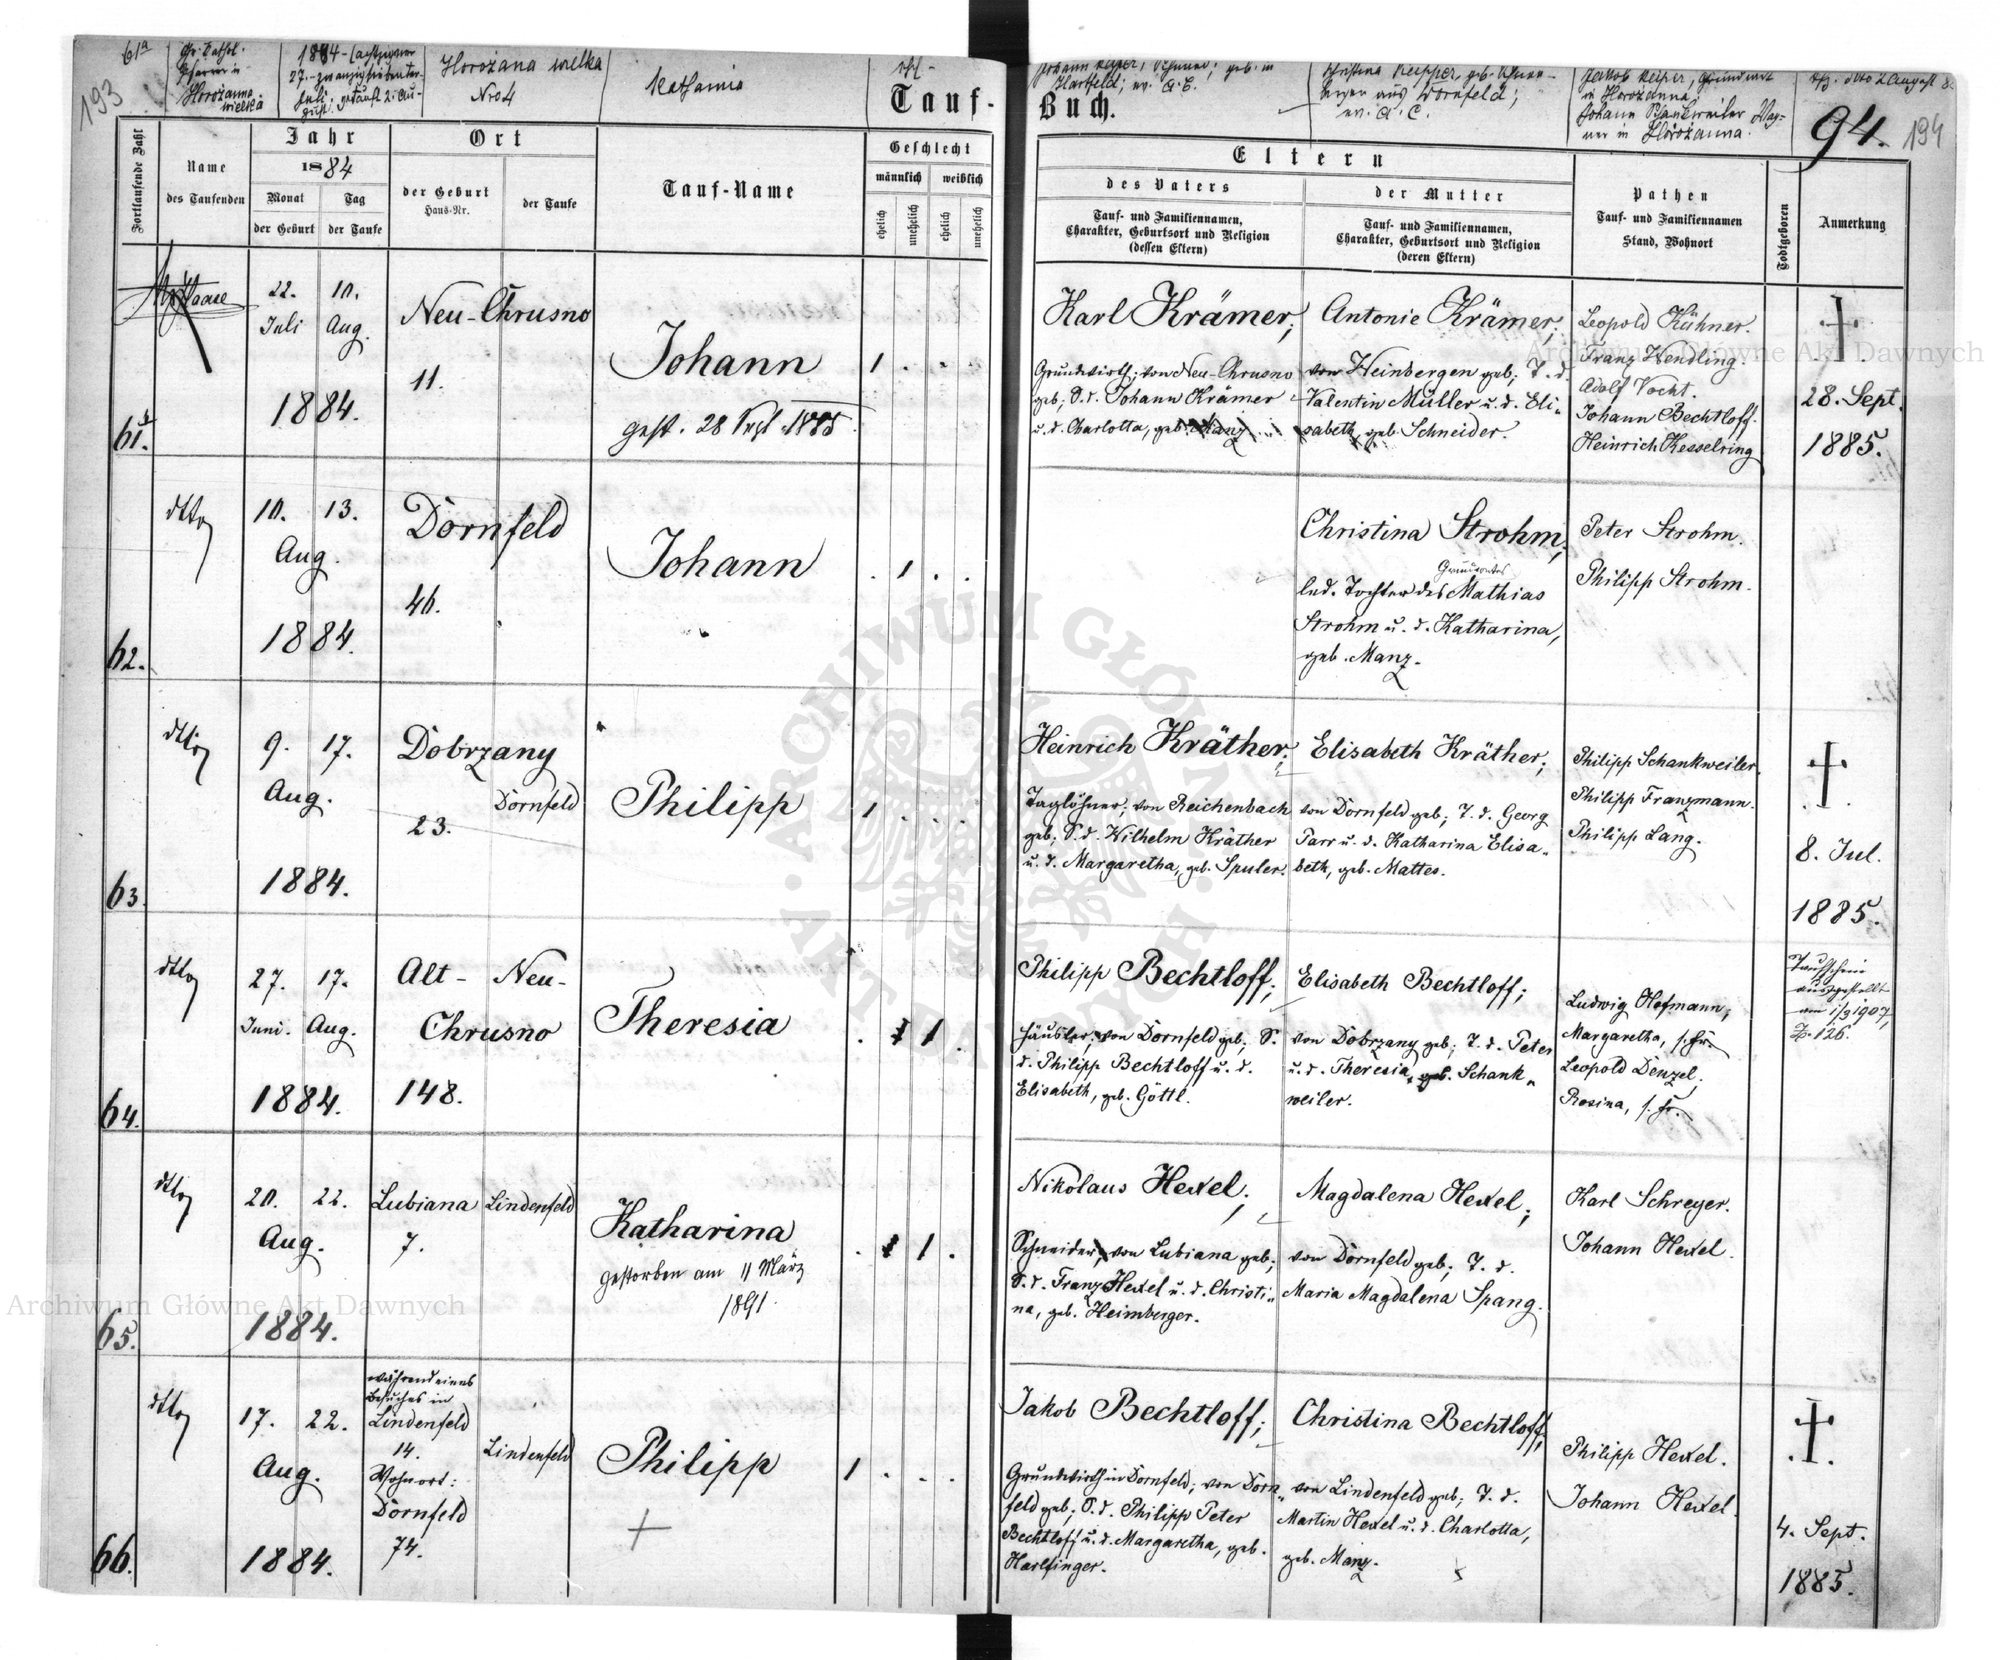 193
61a
gr. Cathol.
Pfarrer in
Horożanna
wielka
1884
27.
Juli; getauft 2. Au-
gust.
Horożana wielka
Nro 4
Katharina
Johann Keiper,
Hartfeld; ev. A. C.
Christina Keipper, geb.
aus Dornfeld;
ev. A. C.
Jakob Keiper, Grundwirt
in Horożanna;
Johann Schankweiler Wag-
ner in Horożanna.
dtto 2 August
Tauf-
Buch.
94.
194
Fortlaufende Zahl
Name
des Taufenden
Jahr
1884
Monat
Tag
der Geburt
der Taufe
Ort
der Geburt
Haus-Nr.
der Taufe
Tauf-Name
Geschlecht
männlich
weiblich
ehelich
unehelich
ehelich
unehelich
Eltern
des Vaters
Tauf- und Familiennamen,
Charakter, Geburtsort und Religion
(dessen Eltern)
der Mutter
Tauf- und Familiennamen,
Charakter, Geburtsort und Religion
(deren Eltern)
Pathen
Tauf- und Familiennamen
Stand, Wohnort
Todtgeboren
Anmerkung
61.
22. 10.
Juli Aug.
1884.
Neu-Chrusno
11.
Johann
gest. 28 Sept 1885
1 . . .
Karl Krämer;
Grundwirth; von Neu-Chrusno
geb; S. d. Johann Krämer
u. d. Charlotta, geb. Manz
Antonie Krämer;
von Weinbergen geb; T. d.
Valentin Müller u. d. Eli-
sabeth, geb. Schneider.
Leopold Kühner.
Franz Wendling.
Adolf Vocht.
Johann Bechtloff.
Heinrich Kesselring
28. Sept.
1885.
62.
dtto
10. 13.
Aug.
1884.
Dornfeld
46.
Johann
. 1 . .
Christina Strohm;
led. Tochter des Grundwirtes Mathias
Strohm u. d. Katharina,
geb. Manz.
Peter Strohm.
Philipp Strohm.
63.
dtto
9. 17.
Aug.
1884.
Dobrzany
23.
Dornfeld
Philipp
1 . . .
Heinrich Kräther;
Taglöhner; von Reichenbach
geb; S. d. Wilhelm Kräther
u. d. Margaretha, geb. Spuler.
Elisabeth Kräther;
von Dornfeld geb; T. d. Georg
Parr u. d. Katharina Elisa-
beth, geb. Mattes.
Philipp Schankweiler.
Philipp Franzmann.
Philipp Lang.
8. Jul.
1885.
64.
dtto
27. 17.
Juni. Aug.
1884.
Alt- Neu-
Chrusno
148.
Theresia
. 1 1 .
Philipp Bechtloff;
Häusler; von Dornfeld geb; S.
d. Philipp Bechtloff u. d.
Elisabeth, geb. Göttl.
Elisabeth Bechtloff;
von Dobrzany geb; T. d. Peter
u. d. Theresia, geb. Schank-
weiler.
Ludwig Hofmann;
Margaretha, s. Fr.
Leopold Denzel;
Rosina, s. Fr.
Taufschein
ausgestellt
am 1/3 1907,
Z. 126.
65.
dtto
20. 22.
Aug.
1884.
Lubiana
7.
Lindenfeld
Katharina
gestorben am 11 März
1891.
. 1 1 .
Nikolaus Hexel;
Schneider, von Lubiana geb;
S. d. Franz Hexel u. d. Christi-
na, geb. Heimberger.
Magdalena Hexel;
von Dornfeld geb; T. d.
Maria Magdalena Spang.
Karl Schreyer.
Johann Hexel.
66.
dtto
17. 22.
Aug.
1884.
während eines
Besuches in
Lindenfeld
14.
Wohnort:
Dornfeld
74.
Lindenfeld
Philipp
1 . . .
Jakob Bechtloff;
Grundwirth in Dornfeld; von Dorn-
feld geb; S. d. Philipp Peter
Bechtloff u. d. Margaretha, geb.
Harlfinger.
Christina Bechtloff;
von Lindenfeld geb; T. d.
Martin Hexel u. d. Charlotta,
geb. Manz.
Philipp Hexel.
Johann Hexel.
4. Sept.
1885.
Archiwum Główne Akt Dawnych
Archiwum Główne Akt Dawnych
ARCHIWUM GŁÓWNE AKT DAWNYCH